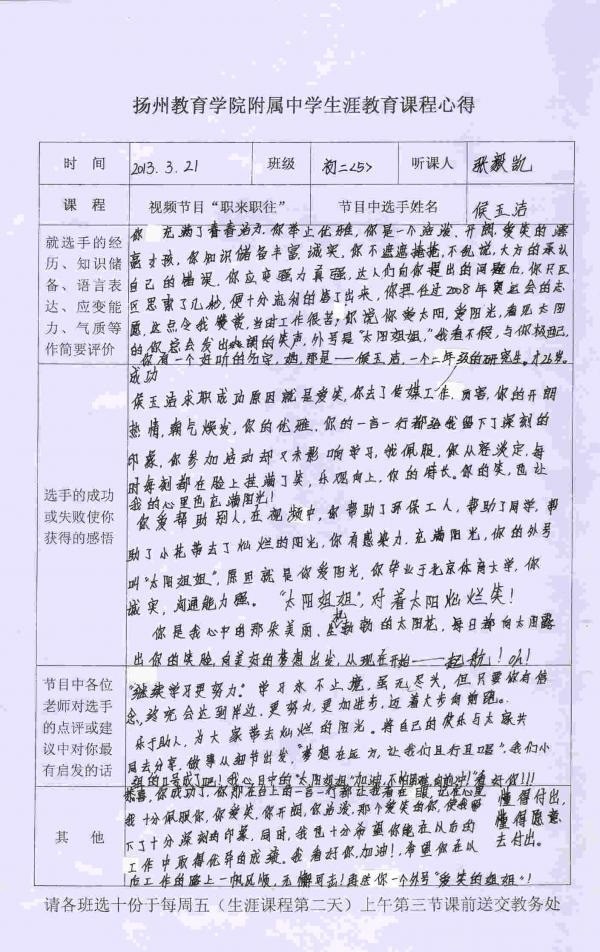 扬州教育学院附属中学生涯教育课程心得
时 间 2013.3.21 班级 初二<5> 听课人 张毅凯
课 程 视频节目“职来职往” 节目中选手姓名 侯玉洁
就选手的经
历、知识储
备、语言表
达、应变能
力、气质等
作简要评价
你充满了青春活力,你举止优雅,你是一个活泼、开朗、爱笑的漂
亮女孩,你知识储备丰富,诚实,你不遮遮掩掩,不乱说,大方的承认
自己的错误,你应变强力真强,达人们向你提出的问题后,你只区
区思索了几秒,便十分流利的答了出来,你担任过2008年奥运会的志
愿,这点令我赞赏,当由工作很苦,你说你爱太阳,爱阳光,看见太阳
的你总会发出的笑声,外号是“太阳姐姐”,我看不假,与你极自己,
你有一个好听的名字,想,那是——侯玉洁,一个二年级的研究生。才26岁。
选手的成功
或失败使你
获得的感悟
成功
侯玉洁求职成功原因就是爱笑,你去了传媒工作,厉害,你的开朗
热情,朝气焕发,你的优雅,你的一言一行都给我留下了深刻的
印象,你参加活动却又未影响学习,我佩服,你从容淡定,每
时每刻都在脸上挂满了笑,乐观向上,你的特长。你的笑,也让
我的心里也充满阳光!
你爱帮助别人,在视频中,你帮助了环保工人,帮助了同学,帮
助了小花带去了灿烂的阳光,你有感染力,充满阳光,你的外号
叫“太阳姐姐”,原因就是你爱阳光,你毕业于北京体育大学,你
诚实,沟通能力强。“太阳姐姐”,对着太阳灿烂笑!
你是我心中的那朵美丽、生机勃勃的太阳花,每日都向太阳露
出你的笑脸,向美好的梦想出发,从现在开始——起航!Oh!
节目中各位
老师对选手
的点评或建
议中对你最
有启发的话
“继续学习更努力”学习永不止境,虽无尽头,但只要你有信
念,终究会达到岸边,更努力,更加进步,迈着大步向前跑。
乐于助人,为大家带去灿烂的阳光。将自己的快乐与大家共
同去分享,做事从细节出发,“梦想在远方,让我们且行且唱”,我们小
组的11号成了吧!我心目中的“太阳姐姐”加油,不怕困难向前冲!看好你!!!
其 他
恭喜,你成功了,你那在台上的一言一行都让我看在眼,记在心里
我十分佩服你,你爱笑,你开朗,你活泼,那个爱笑的你,使我留
下了十分深刻的印象,同时,我也十分希望你能在以后的
工作中取得优异的成绩。我看好你,加油!,希望你在以
后工作的路上一帆风顺,无懈可击!再送你一个外号“爱笑的姐姐”!
懂得付出,
懂得愿意
去付出。
请各班选十份于每周五(生涯课程第二天)上午第三节课前送交教务处